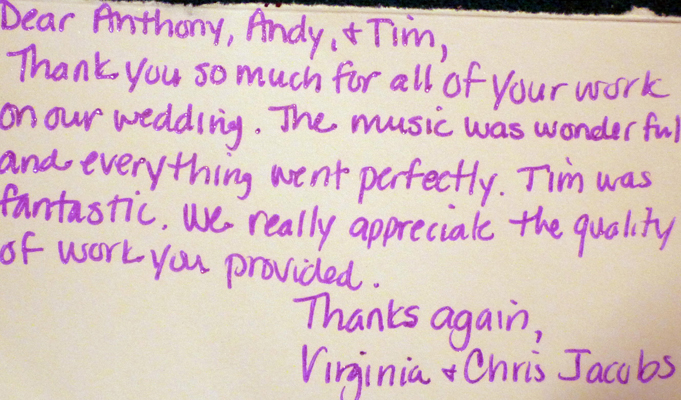 Dear Anthony, Andy, & Tim,
Thank you so much for all of your work
on our wedding. The music was wonderful
and everything went perfectly. Tim was
fantastic. We really appreciate the quality
of work you provided.
Thanks again,
Virginia & Chris Jacobs